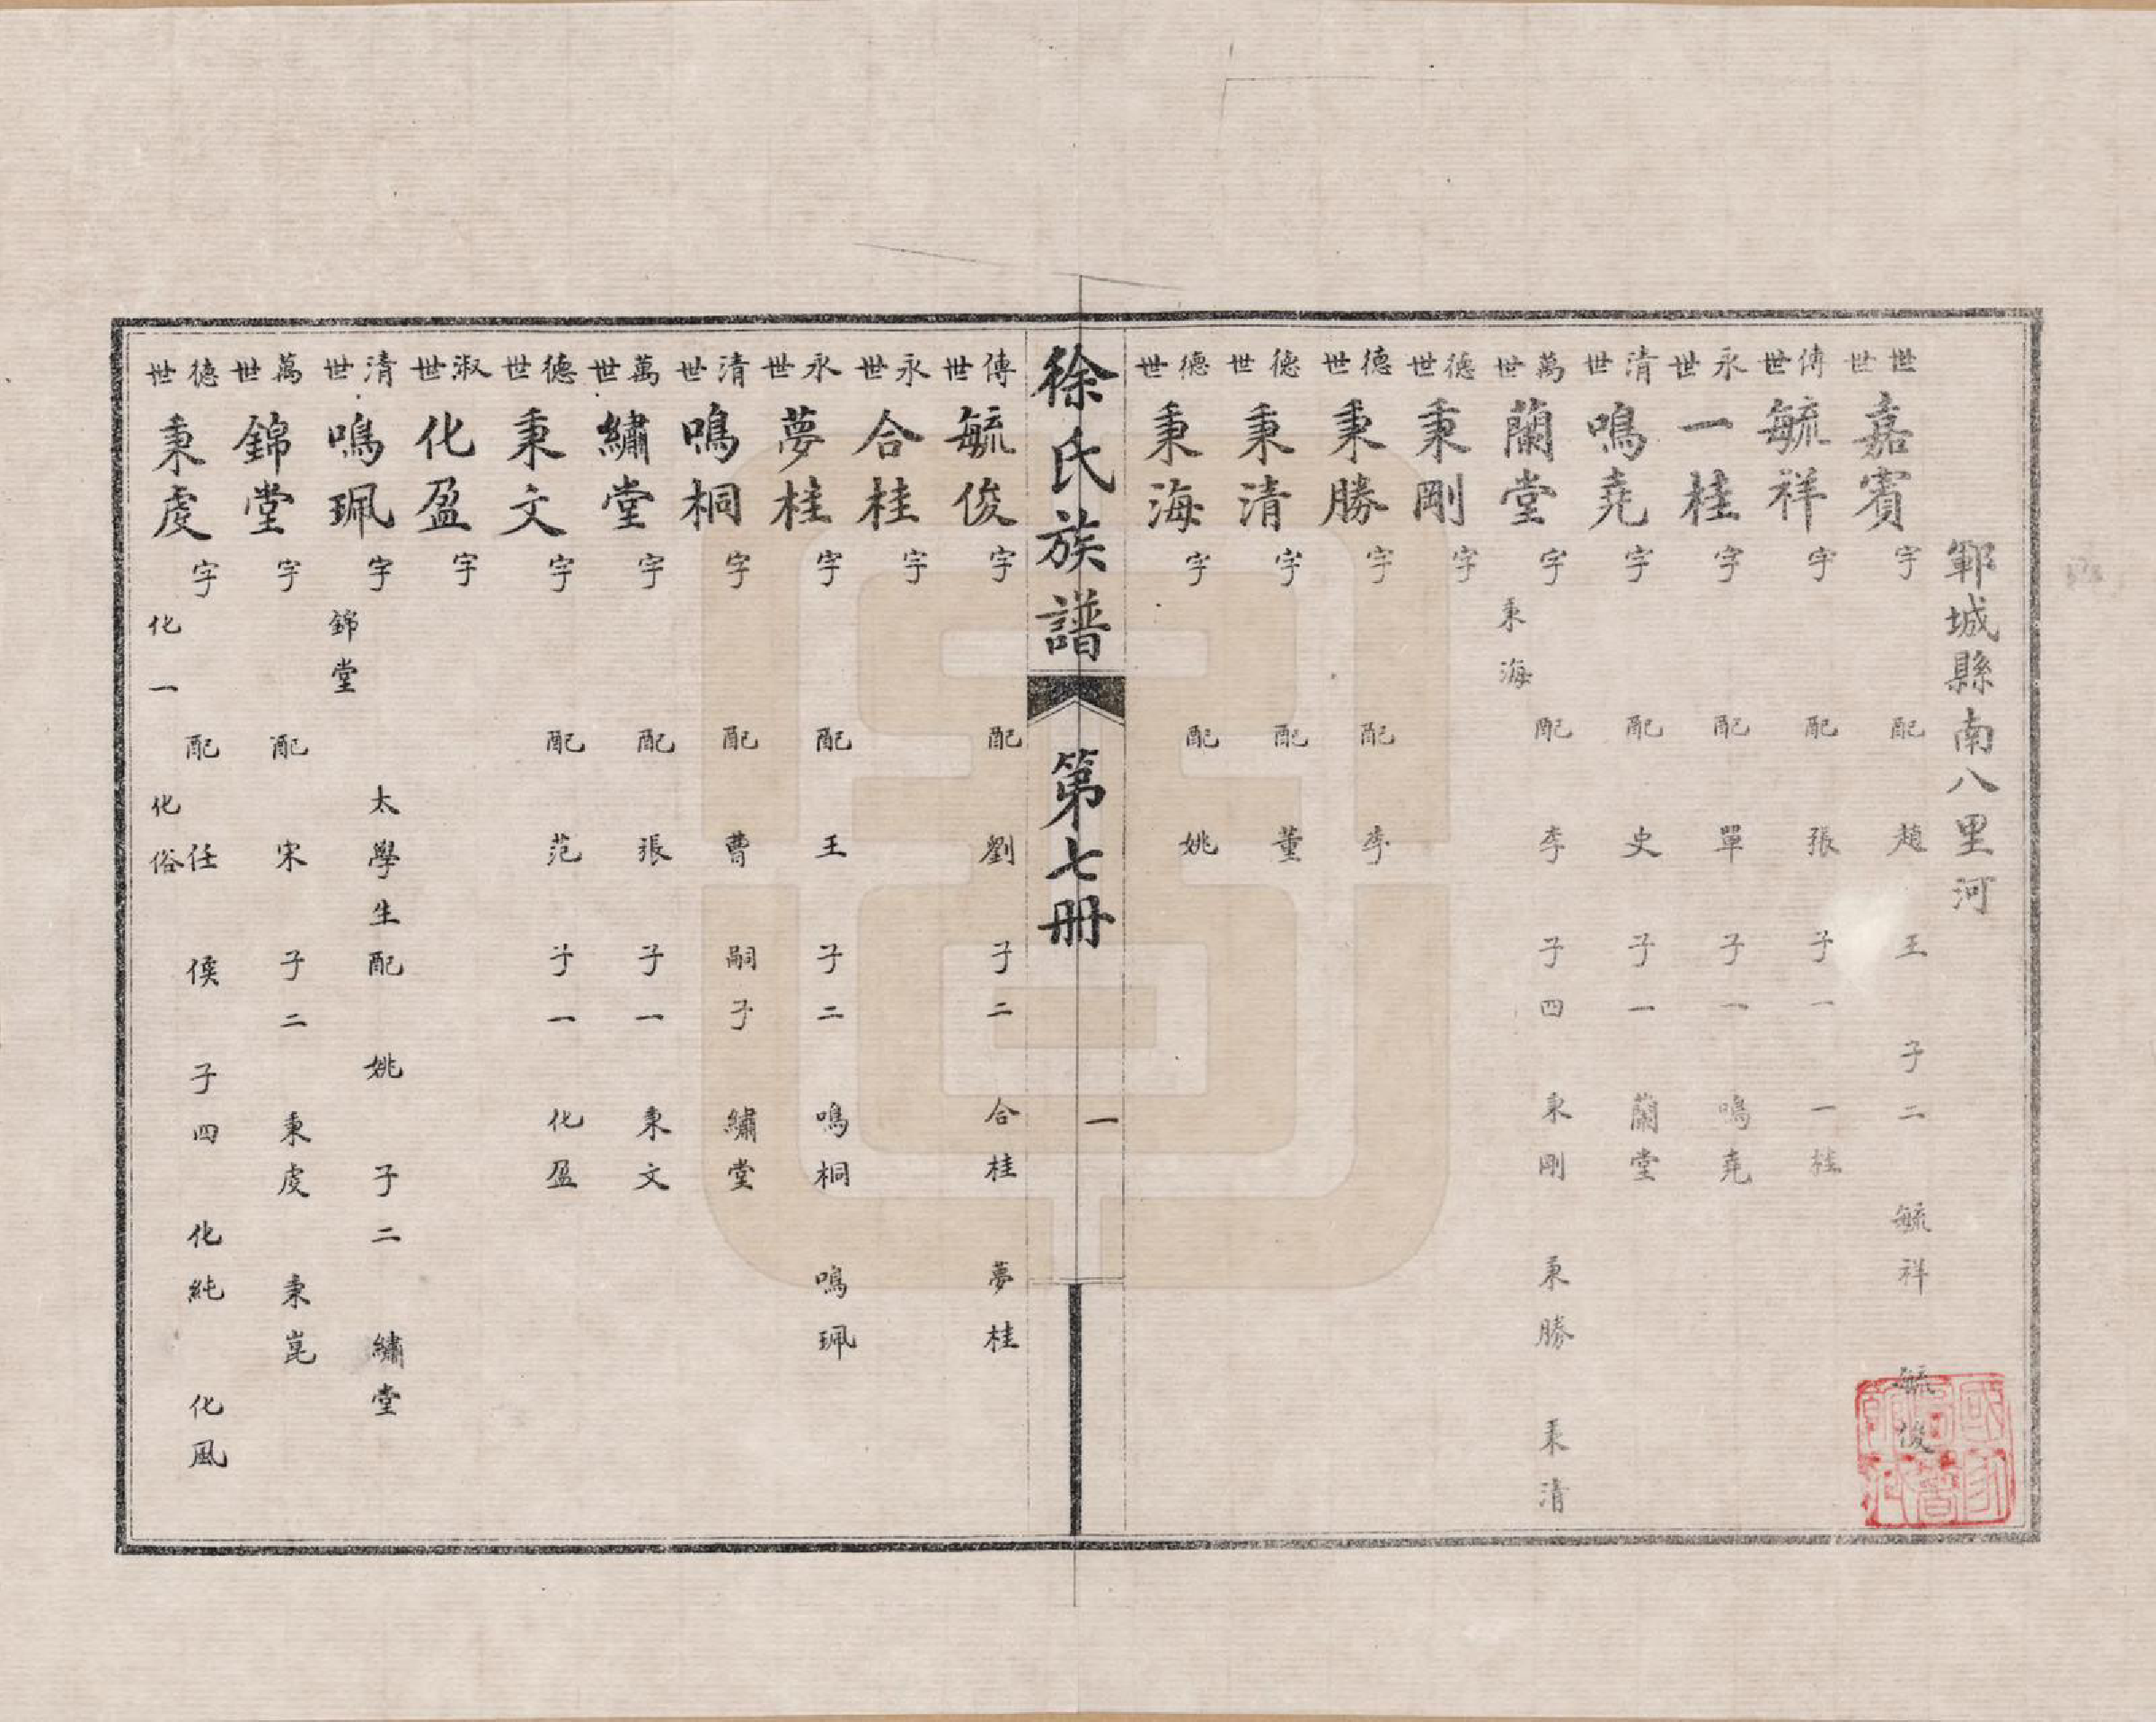 鄆城縣南八里河
世世 嘉賓 字 配 趙 王 子二 毓祥 毓俊
傳世 毓祥 字 配 張 子一 一桂
永世 一桂 字 配 單 子一 鳴堯
清世 鳴堯 字 配 史 子一 蘭堂
萬世 蘭堂 字 配 李 子四 秉剛 秉勝 秉清 秉海
德世 秉剛 字
德世 秉勝 字 配 李
德世 秉清 字 配 董
德世 秉海 字 配 姚
徐氏族譜 第七冊 一
傳世 毓俊 字 配 劉 子二 合桂 夢桂
永世 合桂 字
永世 夢桂 字 配 王 子二 鳴桐 鳴珮
清世 鳴桐 字 配 曹 嗣子 繡堂
萬世 繡堂 字 配 張 子一 秉文
德世 秉文 字 配 范 子一 化盈
淑世 化盈 字
清世 鳴珮 字 太學生 配 姚 子二 繡堂 錦堂
萬世 錦堂 字 配 宋 子二 秉虔 秉崑
德世 秉虔 字 配 任 侯 子四 化純 化風 化一 化俗